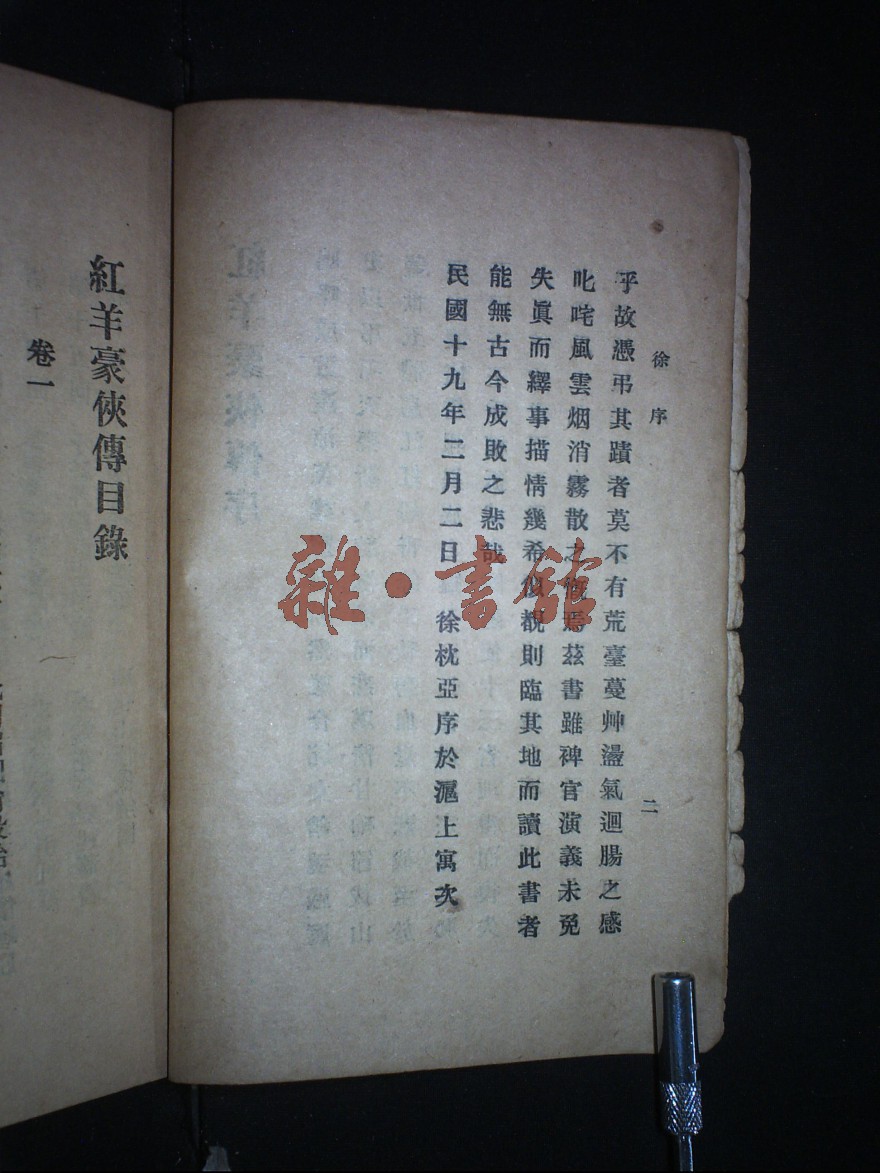 徐序
二
乎故憑弔其蹟者莫不有荒臺蔓艸盪氣迴腸之感
叱咤風雲烟消霧散之慨焉茲書雖稗官演義未免
失眞而繹事描情幾希似覩則臨其地而讀此書者
能無古今成敗之悲哉
民國十九年二月二日 徐枕亞序於滬上寓次
紅羊豪俠傳目錄
卷一
雜·書館